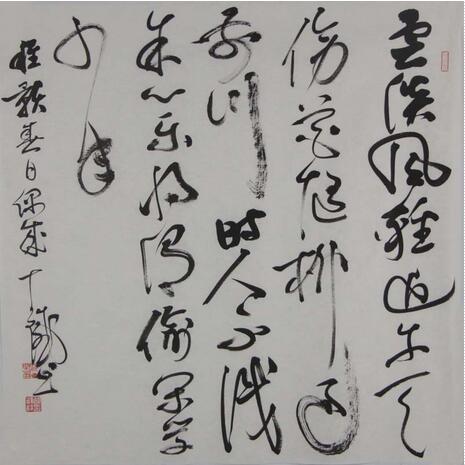 雲淡風輕近午天
傍花随柳过
前川时人不識
余心乐将谓偷闲学
少年
程颢春日偶成